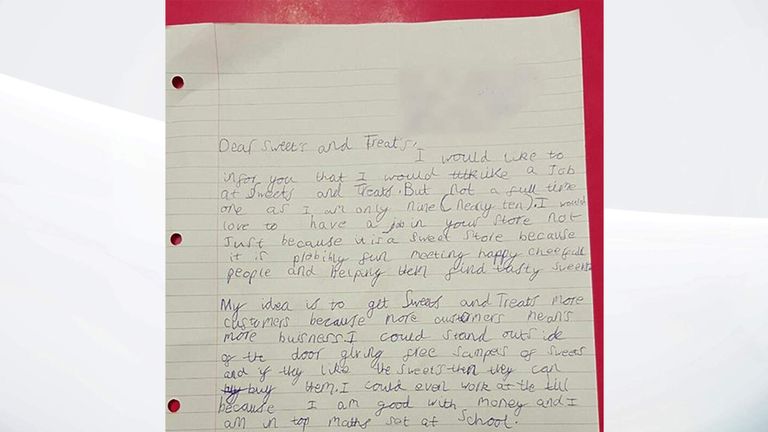 Dear Sweets and Treats,
I would like to
infor you that I would like a Job
at Sweets and Treats. But not a full time
one as I am only nine (nearly ten). I would
love to have a job in your store not
Just because it is a sweet store because
it is probibly fun meeting happy cheefull
people and helping them find tasty sweets
My idea is to get Sweets and Treats more
customers because more customers means
more buisness. I could stand outside
of the door giving free sampels of sweets
and if they like the sweets then they can
buy them. I could even work at the till
because I am good with money and I
am in top maths set at School.